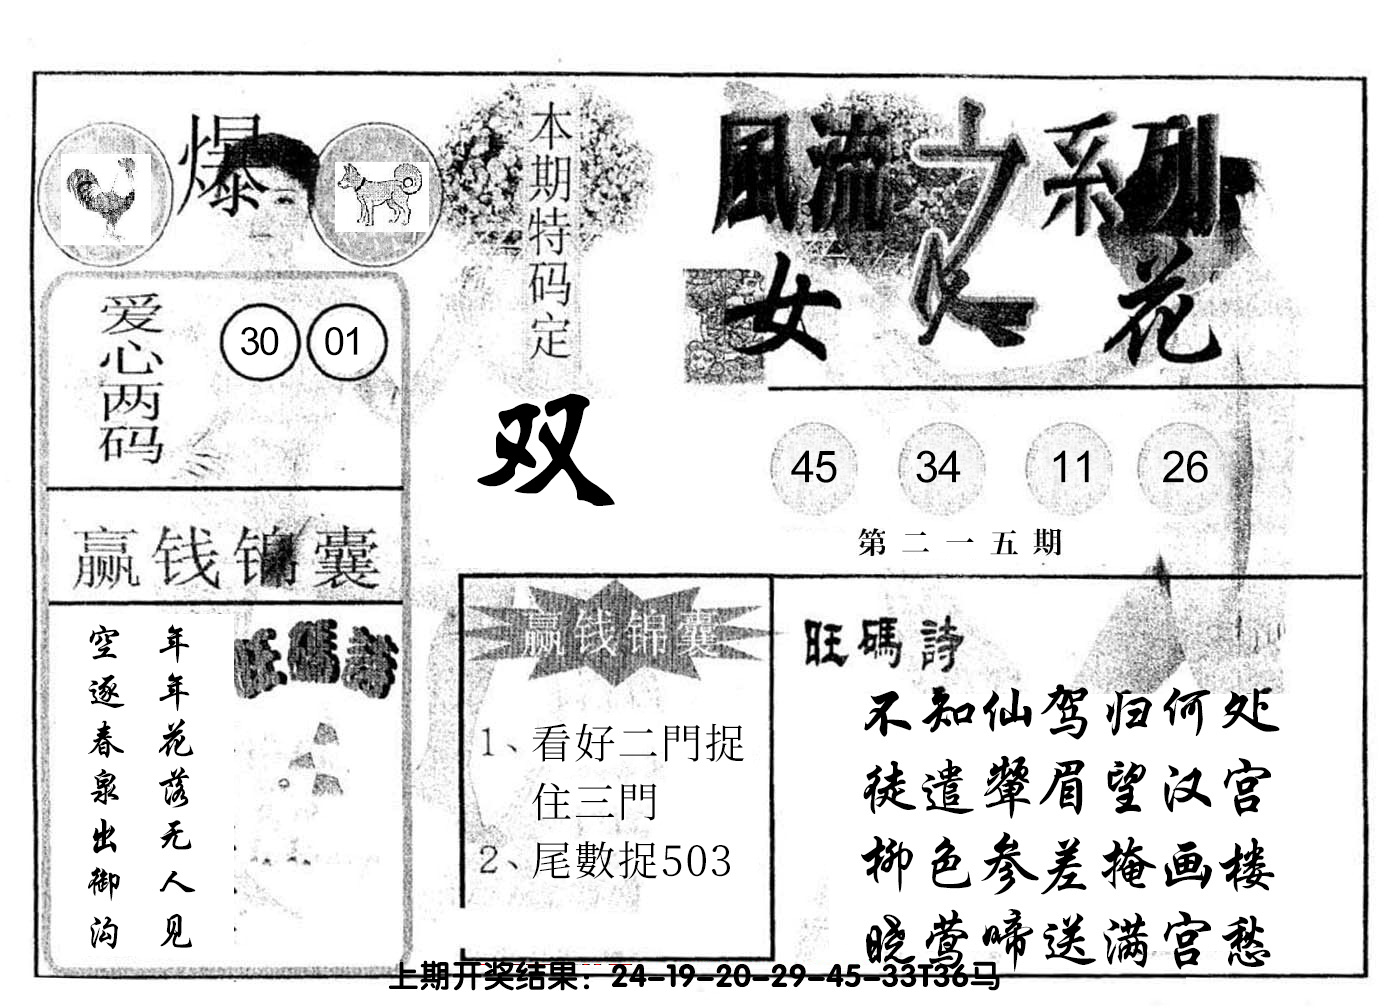 爆
本期特码定
双
風流之系列
女人花
爱心两码
30 01
45 34 11 26
第二一五期
赢钱锦囊
旺碼詩
年年花落无人见
空逐春泉出御沟
赢钱锦囊
1、看好二門捉
住三門
2、尾數捉503
旺碼詩
不知仙驾归何处
徒遣颦眉望汉宫
柳色参差掩画楼
晓莺啼送满宫愁
上期开奖结果：24-19-20-29-45-33T36马